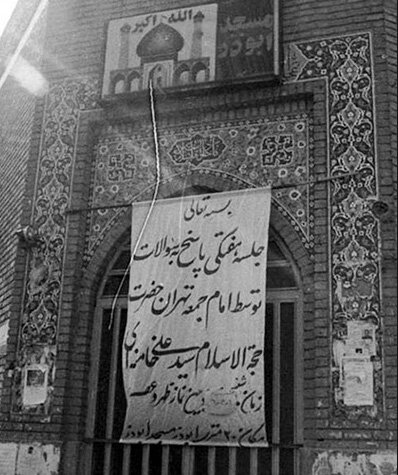 الله اکبر
مسجد
ابوذر
بسمه تعالی
جلسه هفتگی پاسخ به سوالات
توسط امام جمعه تهران حضرت
حجة الاسلام سید علی خامنه‌ای
زمان شنبه بین نماز ظهر و عصر
مکان ۲۰ متری ابوذر مسجد ابوذر